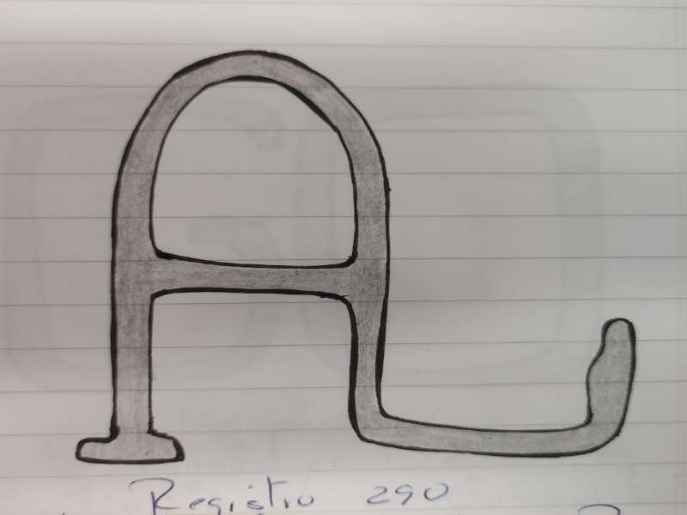 Registro 290